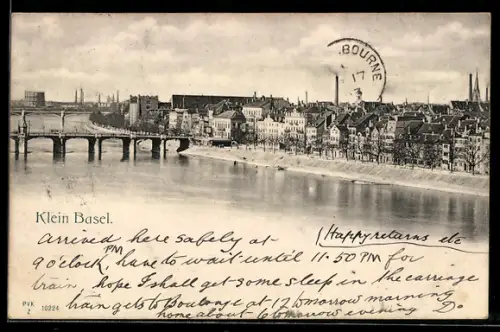 BOURNE
17
Klein Basel.
(Happy returns etc
arrived here safely at
PM
9 o'clock, have to wait until 11·50 PM for
train, hope I shall get some sleep in the carriage
train gets to Boulange at 12 tomorrow morning
home about 6 tomorrow evening D.
PVK
Z 10224